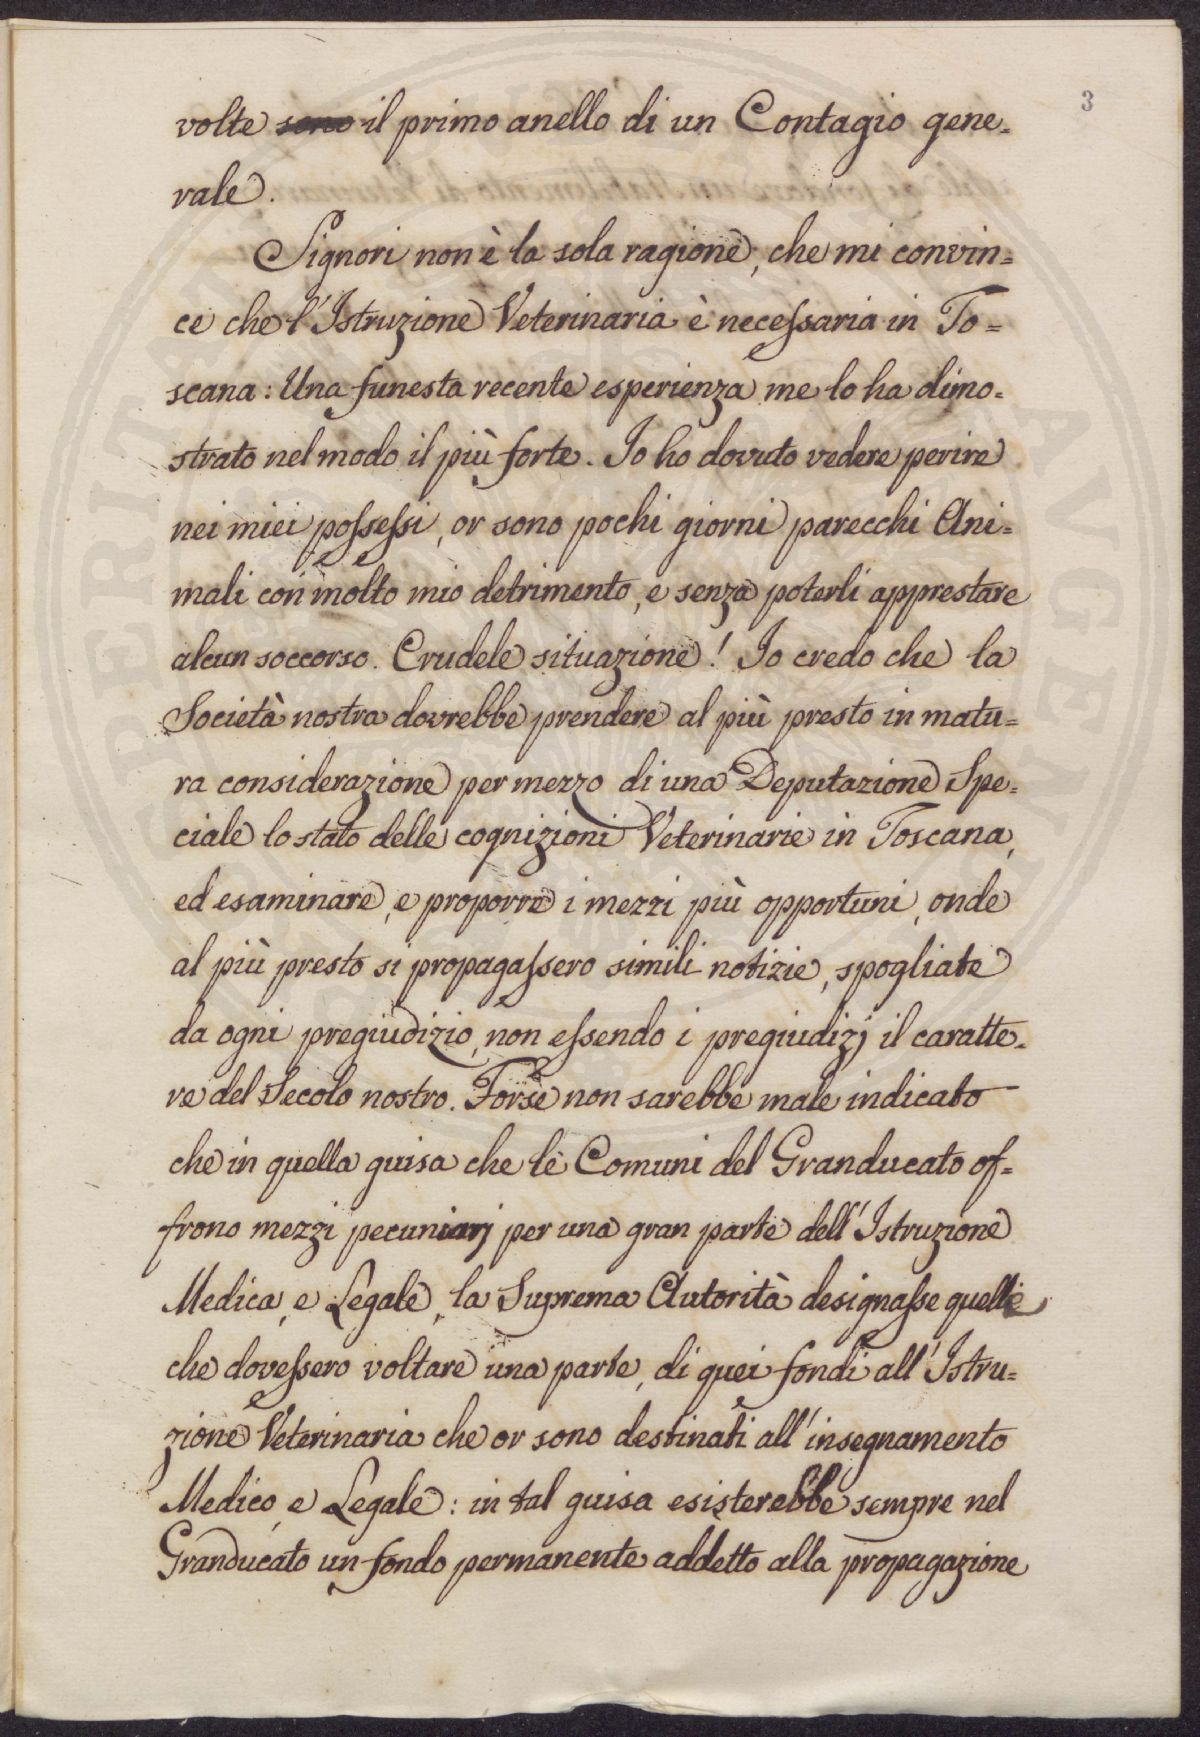 3
volte sono il primo anello di un Contagio gene=
rale.
Signori non è la sola ragione, che mi convin=
ce che l'Istruzione Veterinaria è necessaria in To=
scana: Una funesta recente esperienza me lo ha dimo=
strato nel modo il più forte. Io ho dovuto vedere perire
nei miei possessi, or sono pochi giorni parecchi Ani=
mali con molto mio detrimento, e senza poterli apprestare
alcun soccorso. Crudele situazione! Io credo che la
Società nostra dovrebbe prendere al più presto in matu=
ra considerazione per mezzo di una Deputazione Spe=
ciale lo stato delle cognizioni Veterinarie in Toscana,
ed esaminare, e proporre i mezzi più opportuni, onde
al più presto si propagassero simili notizie, spogliate
da ogni pregiudizio, non essendo i pregiudizj il caratte=
re del Secolo nostro. Forse non sarebbe male indicato
che in quella guisa che le Comuni del Granducato of=
frono mezzi pecuniarj per una gran parte dell'Istruzione
Medica, e Legale, la Suprema Autorità designasse quelle
che dovessero voltare una parte, di quei fondi all'Istru=
zione Veterinaria che or sono destinati all'insegnamento
Medico, e Legale: in tal guisa esisterebbe sempre nel
Granducato un fondo permanente addetto alla propagazione